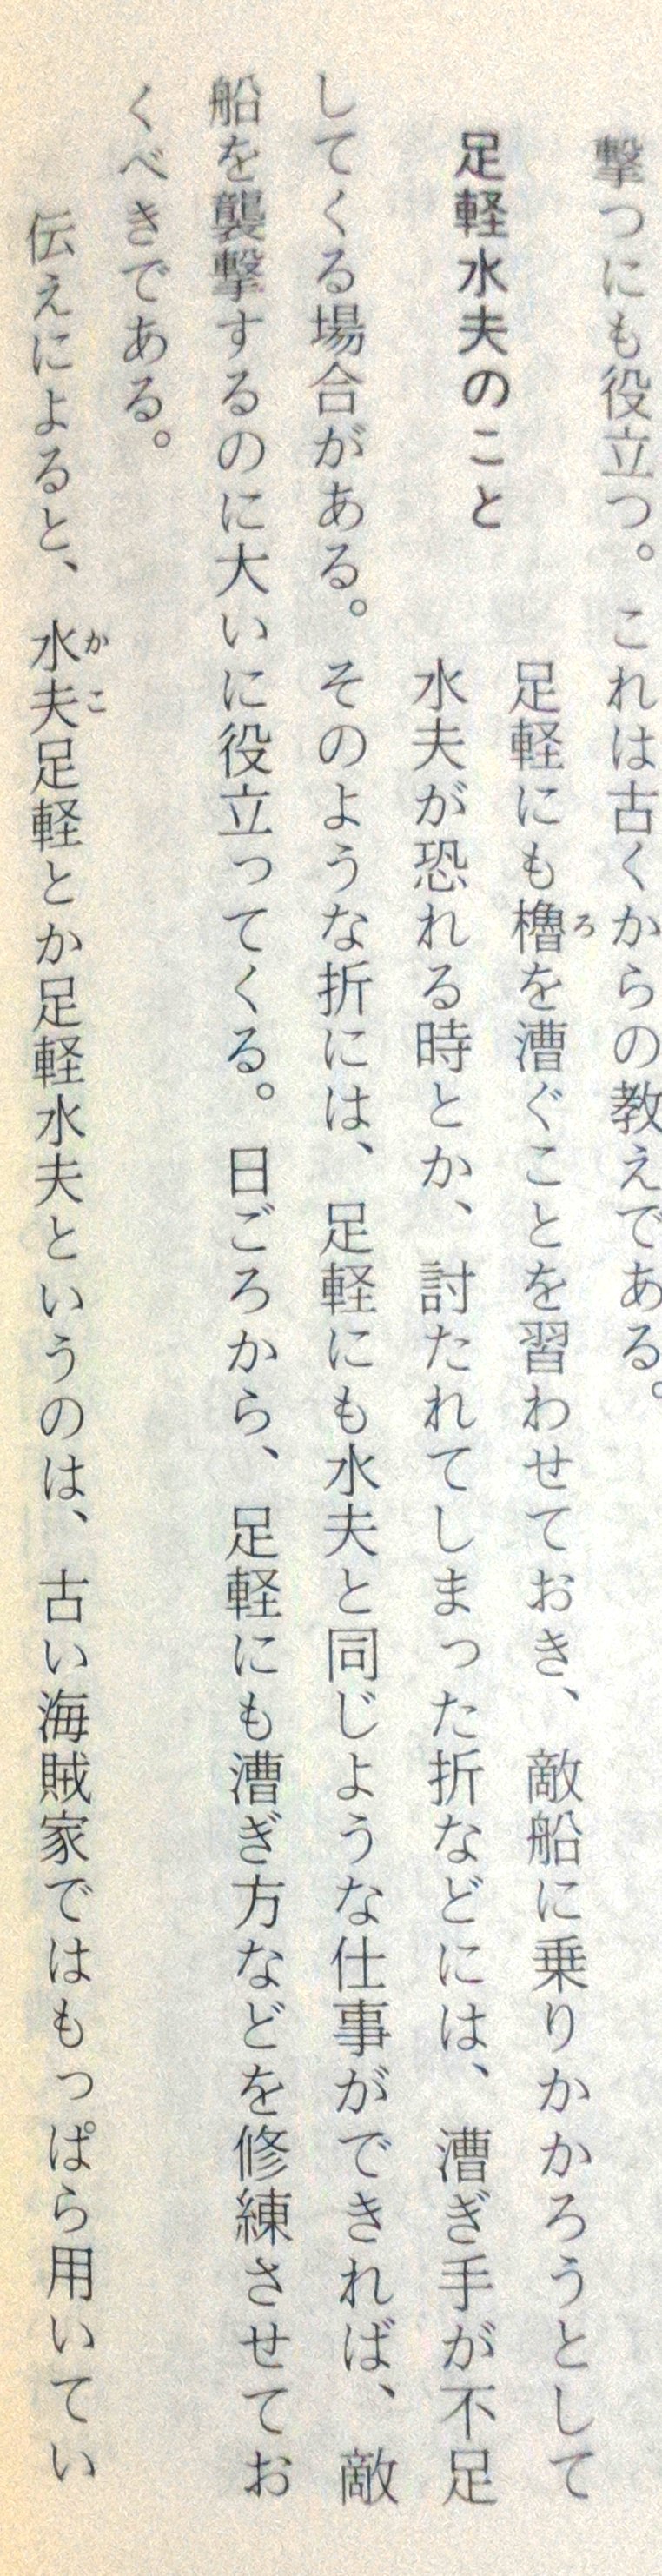 撃つにも役立つ。これは古くからの教えである。
足軽水夫のこと
足軽にも櫓を漕ぐことを習わせておき、敵船に乗りかかろうとして
水夫が恐れる時とか、討たれてしまった折などには、漕ぎ手が不足
してくる場合がある。そのような折には、足軽にも水夫と同じような仕事ができれば、敵
船を襲撃するのに大いに役立ってくる。日ごろから、足軽にも漕ぎ方などを修練させてお
くべきである。
伝えによると、水夫足軽とか足軽水夫というのは、古い海賊家ではもっぱら用いてい